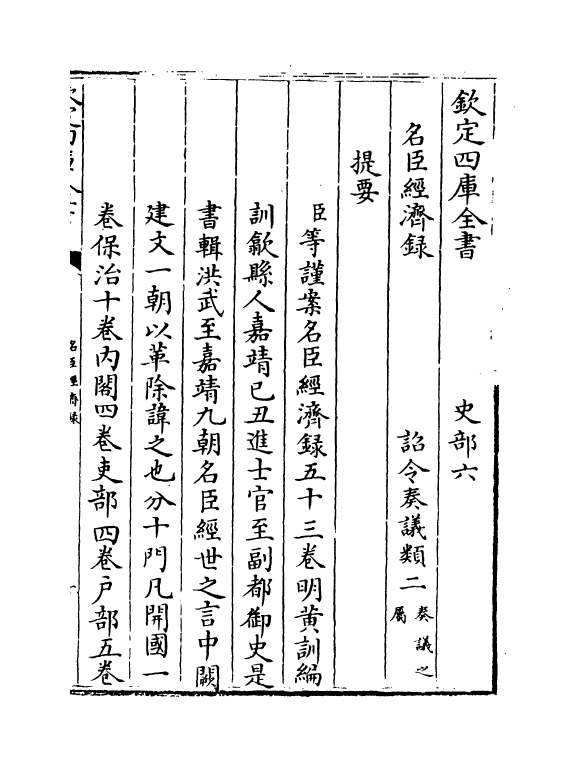 欽定四庫全書　史部六
名臣經濟録　詔令奏議類二奏議之屬
提要
臣等謹案名臣經濟録五十三卷明黄訓編
訓歙縣人嘉靖己丑進士官至副都御史是
書輯洪武至嘉靖九朝名臣經世之言中闕
建文一朝以革除諱之也分十門凡開國一
卷保治十卷内閣四卷吏部四卷户部五卷
名臣經濟録